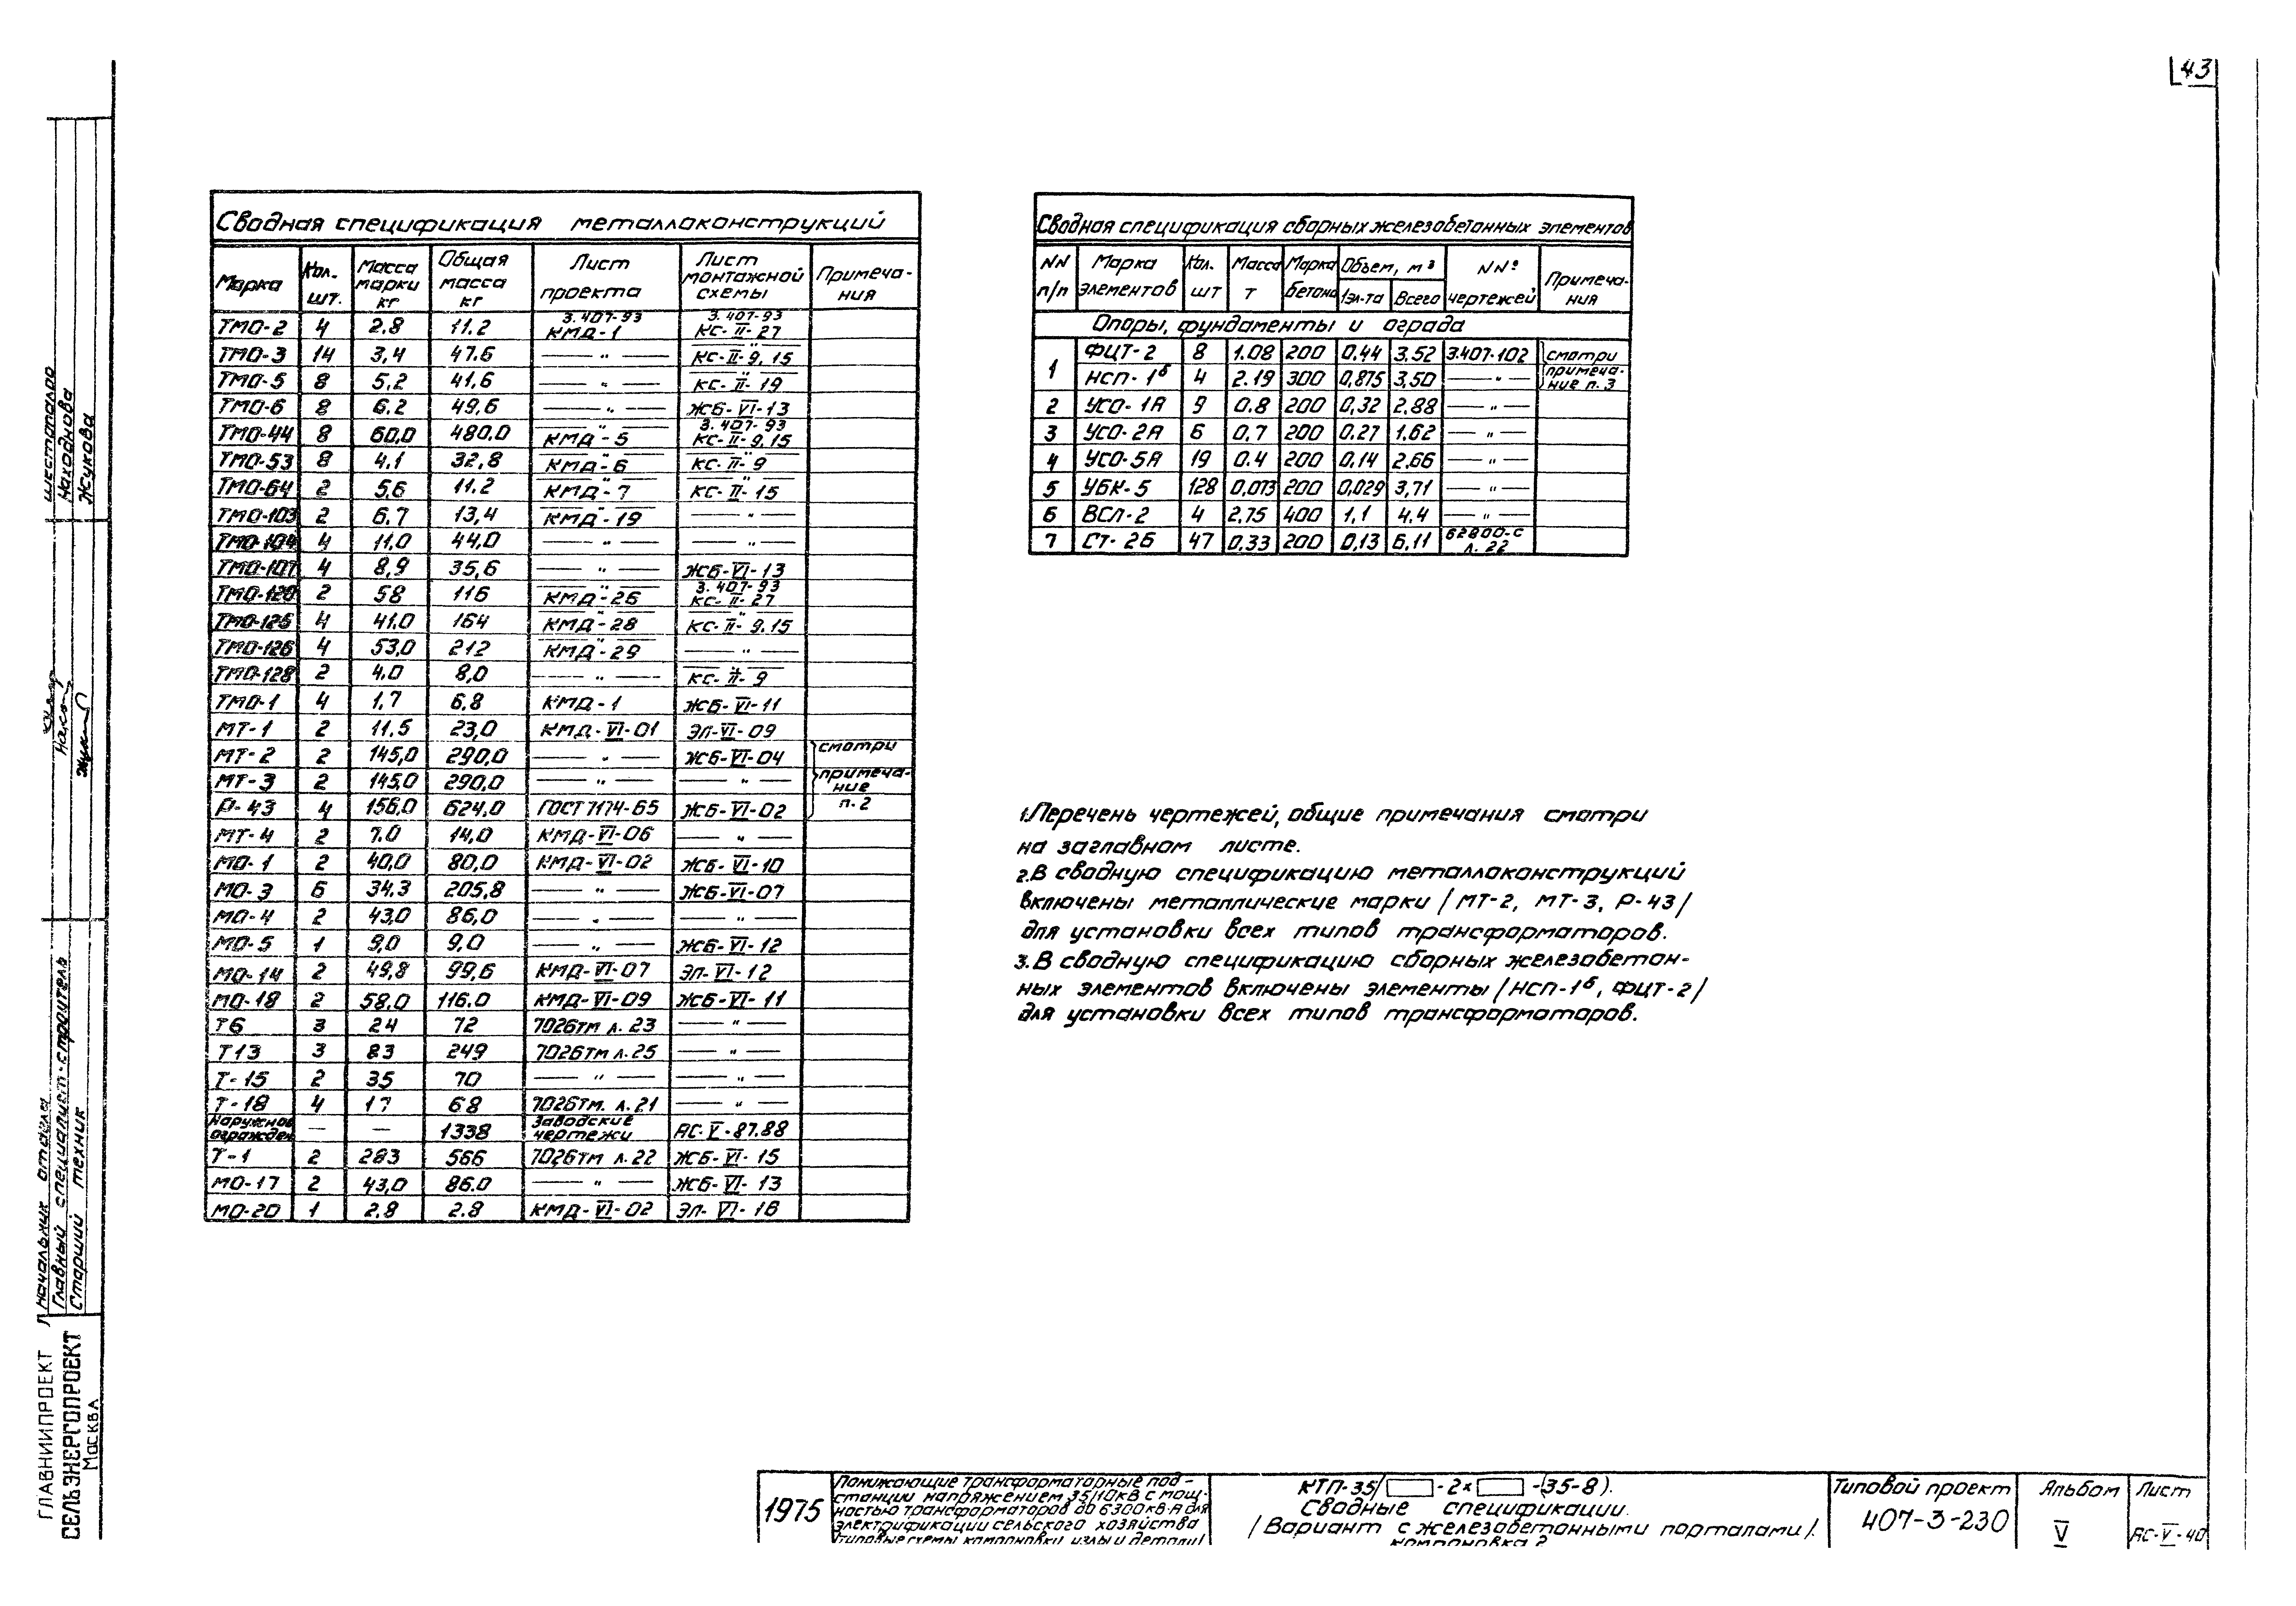 43
Сводная спецификация металлоконструкций
Марка | Кол. шт. | Масса марки кг | Общая масса кг | Лист проекта | Лист монтажной схемы | Примечания
ТМО-2 | 4 | 2.8 | 11.2 | 3.407-93 КМД-1 | 3.407-93 КС-II-27
ТМО-3 | 14 | 3,4 | 47.6 | — " — | — " — КС-II-9.15
ТМО-5 | 8 | 5,2 | 41,6 | — " — | — " — КС-II-19
ТМО-6 | 8 | 6.2 | 49,6 | — " — | ЖБ-VI-13
ТМО-44 | 8 | 60,0 | 480,0 | — " — КМД-5 | 3.407-93 КС-II-9,15
ТМО-53 | 8 | 4,1 | 32,8 | — " — КМД-6 | — " — КС-II-9
ТМО-64 | 2 | 5,6 | 11.2 | — " — КМД-7 | — " — КС-II-15
ТМО-103 | 2 | 6.7 | 13,4 | — " — КМД-19 | — " —
ТМО-104 | 4 | 11,0 | 44,0 | — " — | — " —
ТМО-107 | 4 | 8,9 | 35,6 | — " — | ЖБ-VI-13
ТМО-120 | 2 | 58 | 116 | — " — КМД-26 | 3.407-93 КС-II-27
ТМО-125 | 4 | 41,0 | 164 | — " — КМД-28 | — " — КС-II-9,15
ТМО-126 | 4 | 53,0 | 212 | — " — КМД-29 | — " —
ТМО-128 | 2 | 4.0 | 8,0 | — " — | — " — КС-II-9
ТМО-1 | 4 | 1,7 | 6.8 | КМД-1 | ЖБ-VI-11
МТ-1 | 2 | 11,5 | 23,0 | КМД-VI-01 | ЭЛ-VI-09
МТ-2 | 2 | 145,0 | 290,0 | — " — | ЖБ-VI-04 | смотри
МТ-3 | 2 | 145,0 | 290,0 | — " — | — " — | примечание
Р-43 | 4 | 156,0 | 624,0 | ГОСТ 7174-65 | ЖБ-VI-02 | п.2
МТ-4 | 2 | 7.0 | 14,0 | КМД-VI-06 | — " —
МО-1 | 2 | 40,0 | 80,0 | КМД-VI-02 | ЖБ-VI-10
МО-3 | 6 | 34.3 | 205,8 | — " — | ЖБ-VI-07
МО-4 | 2 | 43,0 | 86,0 | — " — | — " —
МО-5 | 1 | 9,0 | 9.0 | — " — | ЖБ-VI-12
МО-14 | 2 | 49,8 | 99,6 | КМД-VI-07 | ЭЛ-VI-12
МО-18 | 2 | 58.0 | 116.0 | КМД-VI-09 | ЖБ-VI-11
Т6 | 3 | 24 | 72 | 7026тм л.23 | — " —
Т13 | 3 | 83 | 249 | 7026тм л.25 | — " —
Т-15 | 2 | 35 | 70 | — " — | — " —
Т-18 | 4 | 17 | 68 | 7026тм. л.21 | — " —
Наружное огражден | — | — | 1338 | Заводские чертежи | АС-V-87.88
Т-1 | 2 | 283 | 566 | 7026тм л.22 | ЖБ-VI-15
МО-17 | 2 | 43,0 | 86.0 | — " — | ЖБ-VI-13
МО-20 | 1 | 2.8 | 2.8 | КМД-VI-02 | ЭЛ-VI-16
Сводная спецификация сборных железобетонных элементов
NN п/п | Марка элементов | Кол. шт | Масса т | Марка бетона | Объем, м³ 1эл-та | Всего | NNº чертежей | Примечания
Опоры, фундаменты и ограда
1 | ФЦТ-2 | 8 | 1.08 | 200 | 0.44 | 3.52 | 3.407-102 | смотри
НСП-1б | 4 | 2.19 | 300 | 0,875 | 3,50 | — " — | примечание п.3
2 | УСО-1А | 9 | 0.8 | 200 | 0,32 | 2.88 | — " —
3 | УСО-2А | 6 | 0,7 | 200 | 0.27 | 1.62 | — " —
4 | УСО-5А | 19 | 0.4 | 200 | 0,14 | 2.66 | — " —
5 | УБК-5 | 128 | 0,073 | 200 | 0,029 | 3,71 | — " —
6 | ВСЛ-2 | 4 | 2,75 | 400 | 1,1 | 4.4 | — " —
7 | СТ-2Б | 47 | 0.33 | 200 | 0,13 | 6,11 | 62800-С л.22
1.Перечень чертежей, общие примечания смотри
на заглавном листе.
2.В сводную спецификацию металлоконструкций
включены металлические марки /МТ-2, МТ-3, Р-43/
для установки всех типов трансформаторов.
3.В сводную спецификацию сборных железобетон-
ных элементов включены элементы /НСП-1б, ФЦТ-2/
для установки всех типов трансформаторов.
Шестопало
Находнова
Жукова
Начальник отдела
Главный специалист-строитель
Старший техник
ГЛАВНИИПРОЕКТ
СЕЛЬЭНЕРГОПРОЕКТ
Москва
1975
Понижающие трансформаторные под-
станции напряжением 35/10кв с мощ-
ностью трансформаторов до 6300кв·А для
электрификации сельского хозяйства
/типовые схемы компоновки узлы и детали/
КТП-35/ -2х -(35-8).
Сводные спецификации.
/Вариант с железобетонными порталами/.
компоновка 2
Типовой проект
407-3-230
Альбом
V
Лист
АС-V-40